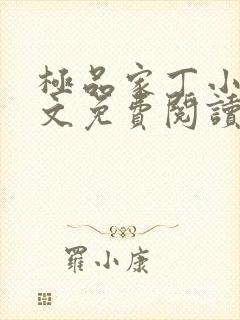 極品家丁小
文免費閱讀
羅小康